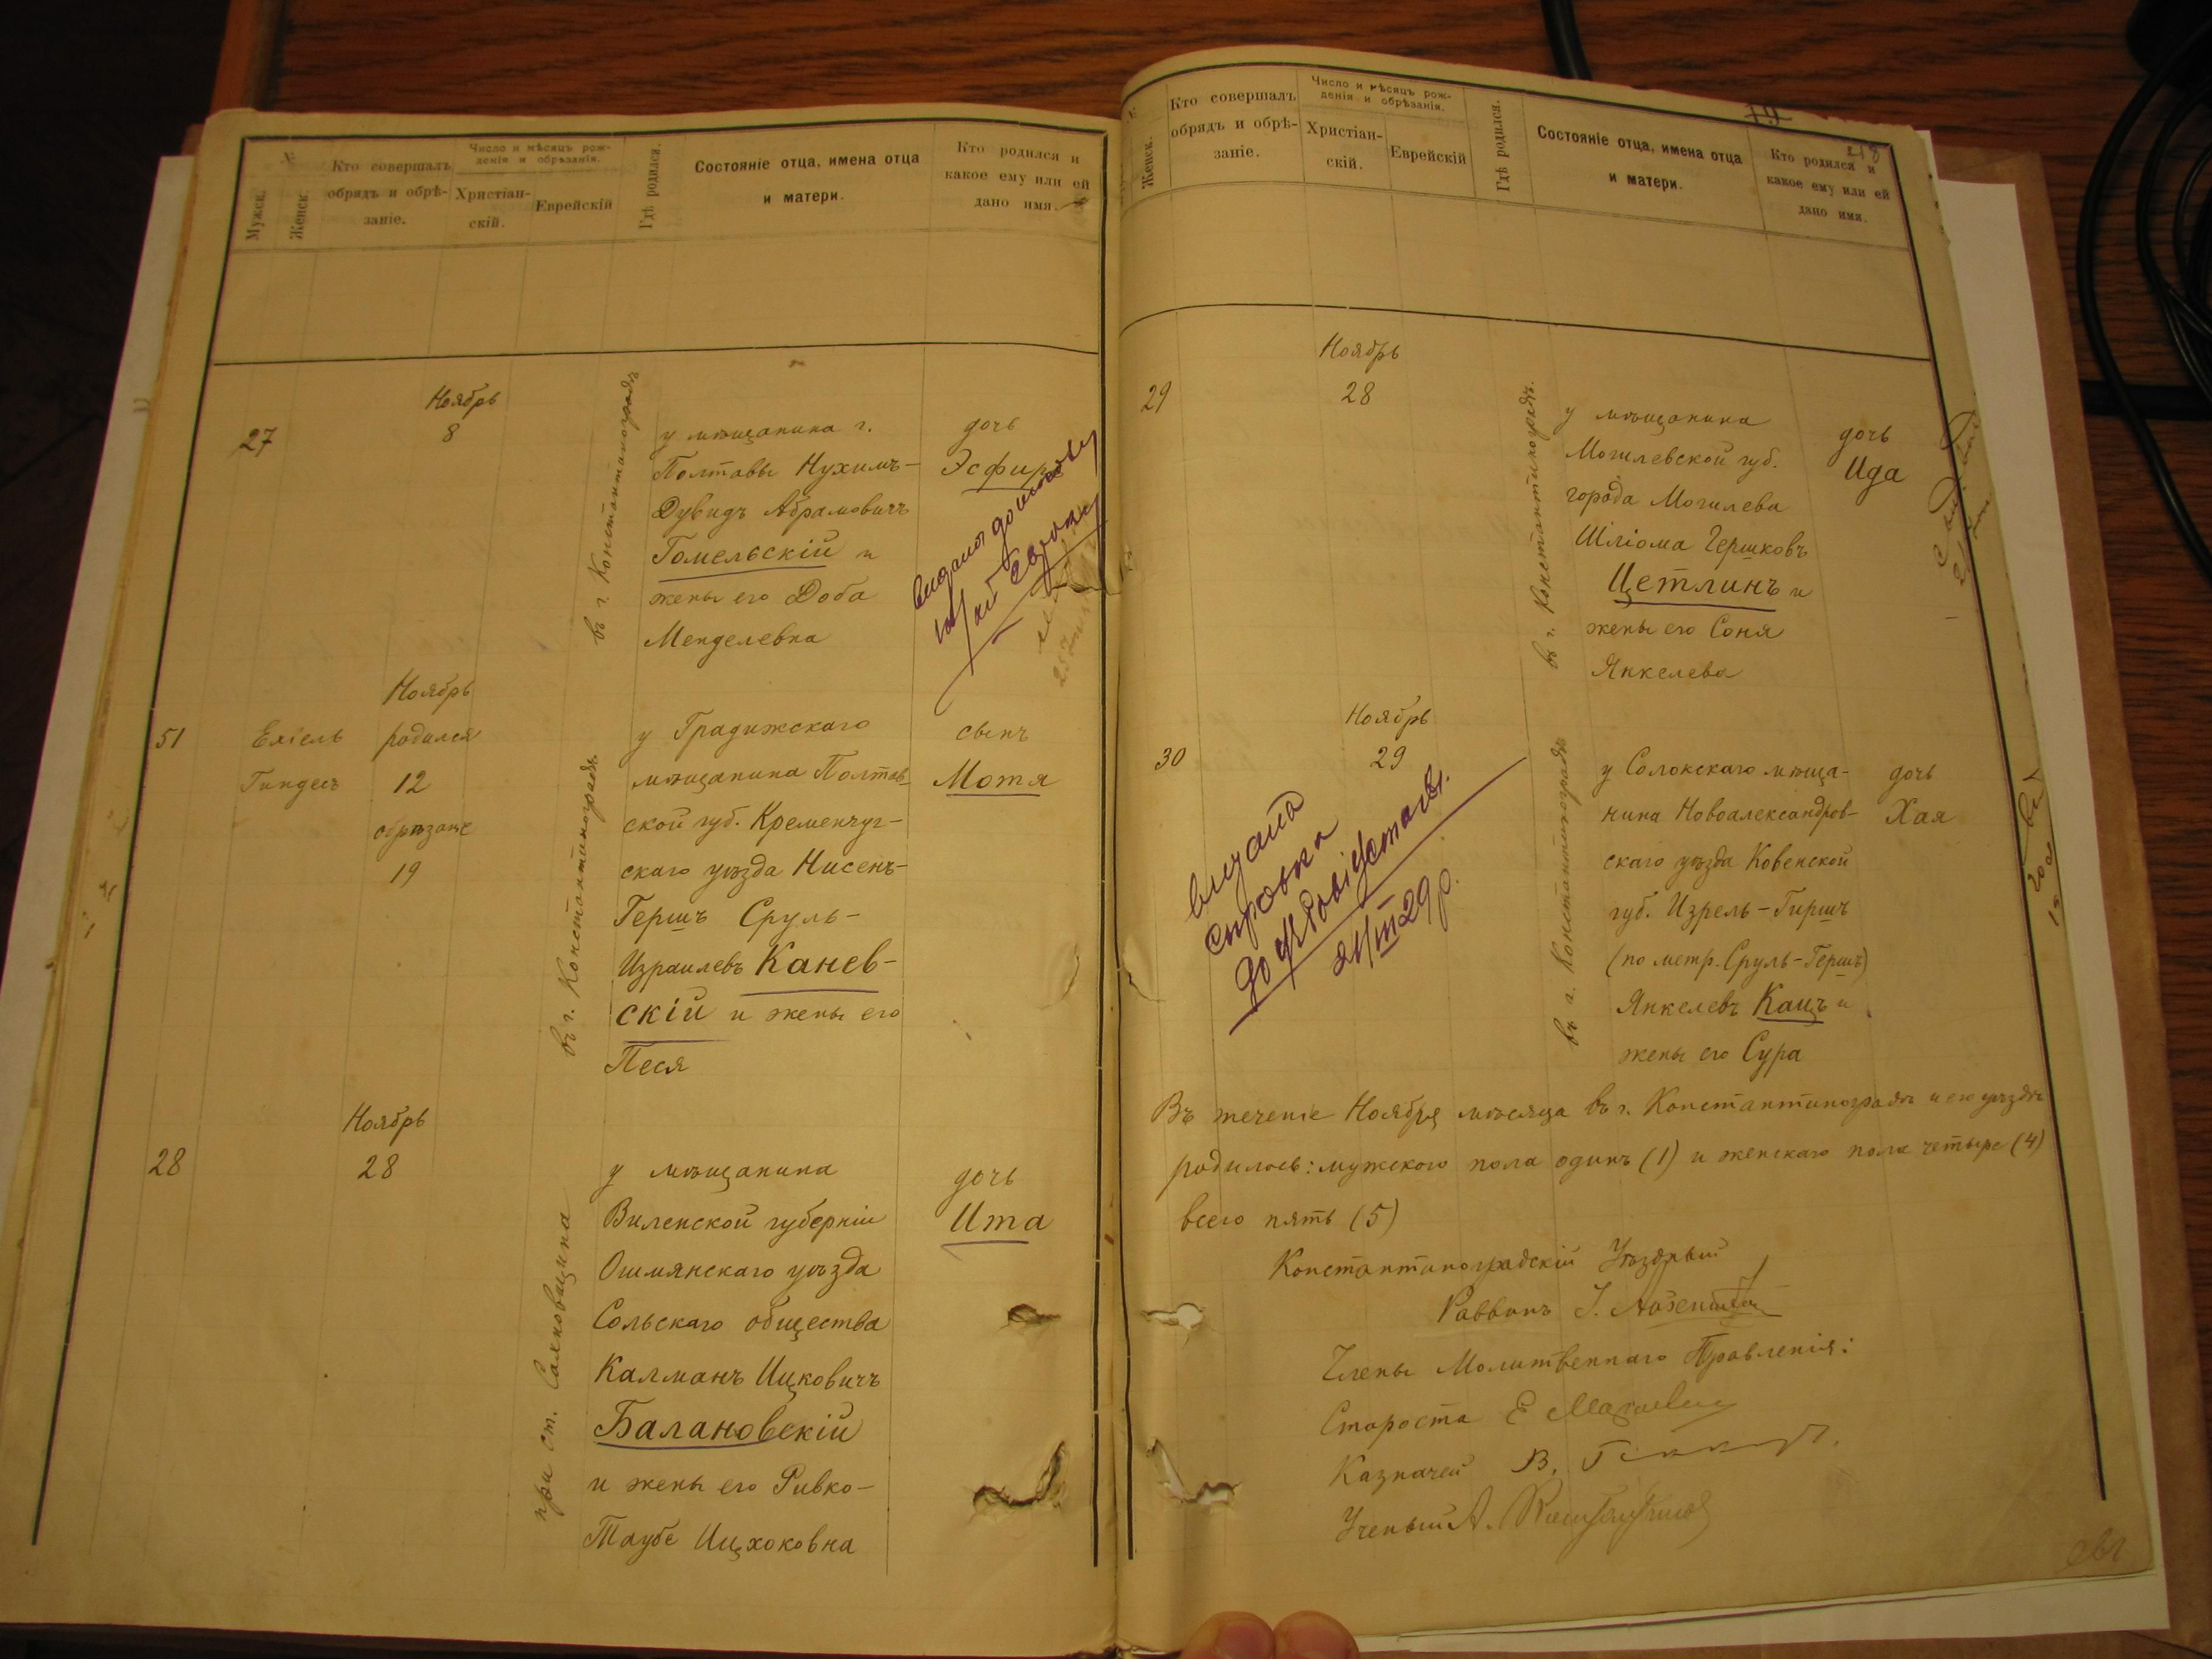 №
Мужск.
Женск.
Кто совершалъ
обрядъ и обрѣ-
заніе.
Число и мѣсяцъ рож-
денія и обрѣзанія.
Христіан-
скій.
Еврейскій
Гдѣ родился.
Состояніе отца, имена отца
и матери.
Кто родился и
какое ему или ей
дано имя.
27
Ноябрь
8
въ г. Константиноградѣ
у мѣщанина г.
Полтавы Нухимъ-
Дувидъ Абрамовичъ
Гомельскій и
жены его Доба
Менделевна
дочь
Эсфирь
51
Ехіель
Гиндесъ
Ноябрь
родился
12
обрѣзанъ
19
въ г. Константиноградѣ
у Градижскаго
мѣщанина Полтав-
ской губ. Кременчуг-
скаго уѣзда Нисенъ-
Гершъ Сруль-
Израилевъ Канев-
скій и жены его
Песя
сынъ
Мотя
28
Ноябрь
28
при ст. Салковщина
у мѣщанина
Виленской губерніи
Ошмянскаго уѣзда
Сольскаго общества
Калманъ Ицковичъ
Балановскій
и жены его Ривко-
Таубе Ицхоковна
дочь
Ита
№
Женск.
Кто совершалъ
обрядъ и обрѣ-
заніе.
Число и мѣсяцъ рож-
денія и обрѣзанія.
Христіан-
скій.
Еврейскій
Гдѣ родился.
Состояніе отца, имена отца
и матери.
Кто родился и
какое ему или ей
дано имя.
218
29
Ноябрь
28
въ г. Константиноградѣ.
у мѣщанина
Могилевской губ.
города Могилева
Шліома Гершковъ
Цетлинъ и
жены его Соня
Янкелева
дочь
Ида
30
Ноябрь
29
видана
справка
21/III 29 р.
въ г. Константиноградѣ
у Солокскаго мѣща-
нина Новоалександров-
скаго уѣзда Ковенской
губ. Изрель-Гиршъ
(по метр. Сруль-Гершъ)
Янкелевъ Кацъ и
жены его Сура
дочь
Хая
Въ теченіе Ноября мѣсяца въ г. Константиноградѣ и его уѣздѣ
родилось: мужского пола одинъ (1) и женскаго пола четыре (4)
всего пять (5)
Константиноградскій Уѣздный
Раввинъ
Члены Молитвеннаго Правленія:
Староста
Казначей
Ученый